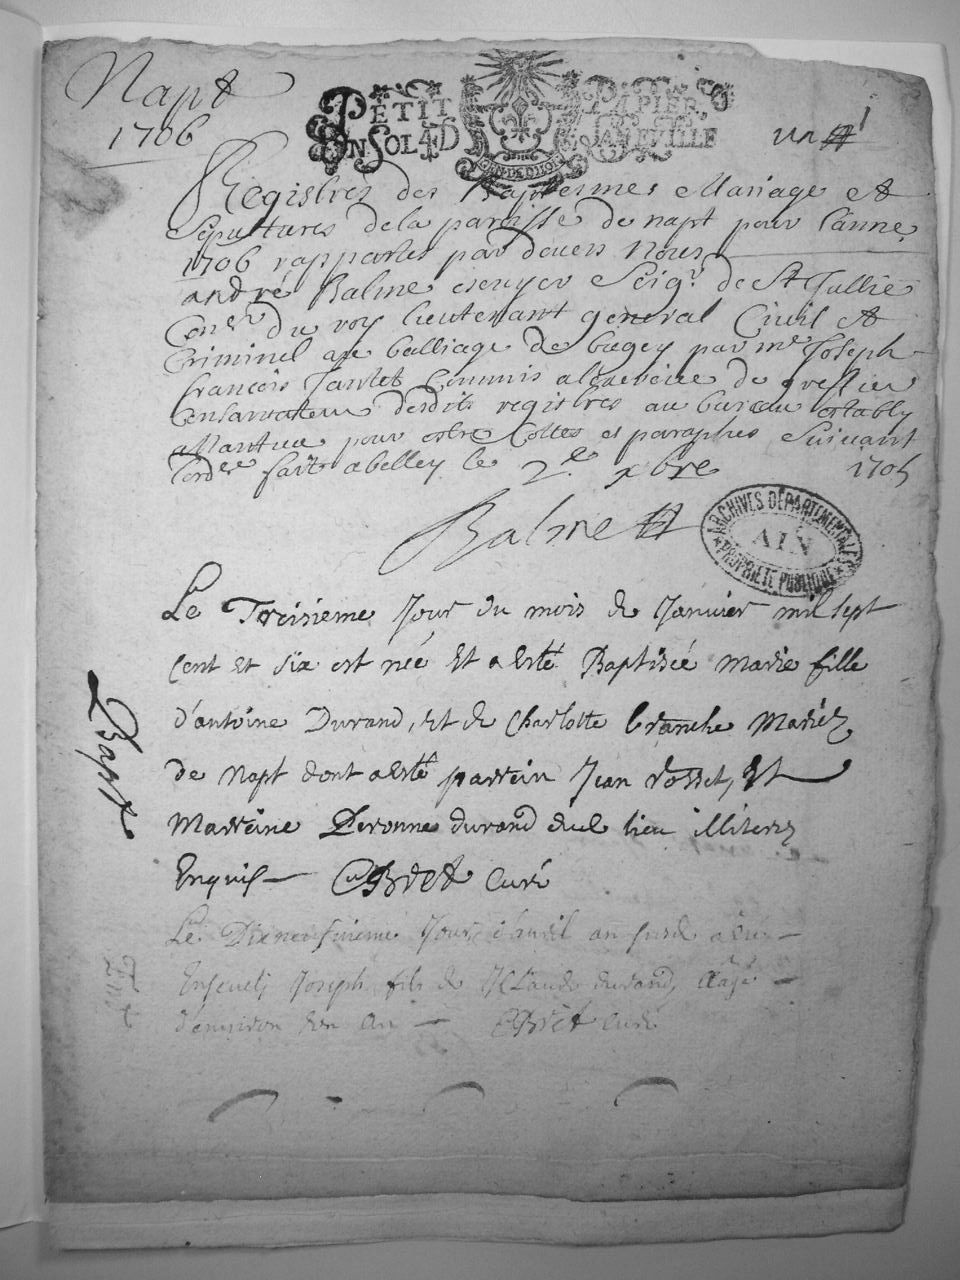 Napt
1706
PETIT PAPIER
UN SOL 4D JANEVILLE
GEN·DE DIJON
un 1
Registres des Baptesmes Mariage et
Sepultures de la paroisse de napt pour lanne
1706 rapportes par devers Nous
andré Balme escuyer Seigr de St Jullie
Coner du roy lieutenant general Civil et
Criminel au balliage de bugey par me Joseph
francois Tantet Commis a lexercice de greffier
Conservateur desdits registres au bureau estably
a Nantua pour estre Cottes et paraphes Suivant
lordre fait a belley le 2e xbre 1705
Balme
ARCHIVES DÉPARTEMENTALES
AIN
PROPRIÉTÉ PUBLIQUE
Bapt
Le Troisieme Jour du mois de Janvier mil sept
Cent et six est née et a esté Baptisée marie fille
d'antoine Durand, et de Charlotte branche Mariéz
de Napt dont a esté parrein Jean rosset, et
Marreine Peronne durand dud lieu illiterez
Enquis Cabret Curé
Le Dixneufvieme Jour d'avril an susd a été
Enseveli Joseph fils de Claude durand, aagé
d'environ un an Cabret Curé